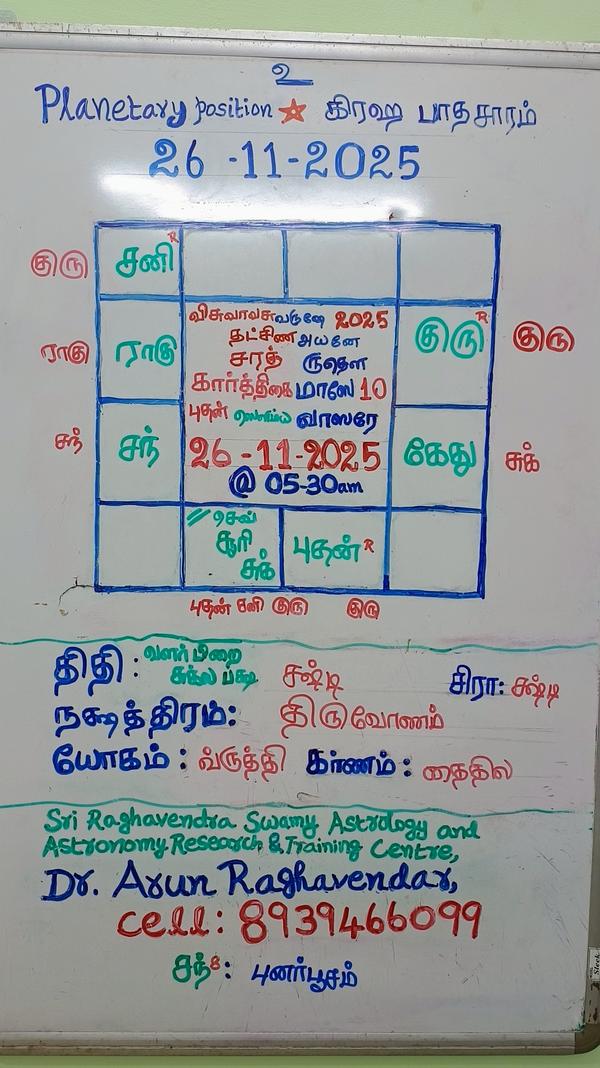 உ
Planetary position கிரஹ பாதசாரம்
26 -11-2025
குரு சனி R
விசுவாவசு வருஷே 2025
தட்சிண அயனே
சரத் ருதௌ
கார்த்திகை மாஸே 10
புதன் ஸௌம்ய வாஸரே
26 -11-2025
@ 05-30am
ராகு ராகு
குரு R குரு
சந் சந்
கேது சுக்
சூரி
சுக்
புதன் R
புதன் சனி குரு குரு
திதி : வளர்பிறை சஷ்டி சிரா: சஷ்டி
சுக்ல பக்ஷ
நக்ஷத்திரம்: திருவோணம்
யோகம் : வ்ருத்தி கர்ணம் : தைதில
Sri Raghavendra Swamy Astrology and
Astronomy Research & Training Centre,
Dr. Arun Raghavendar,
cell: 8939466099
சந்8 : புனர்பூசம்